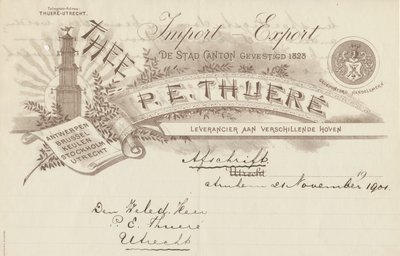 Telegram-Adres:
THUERÉ-UTRECHT.
Import - Export
THEE
DE STAD CANTON GEVESTIGD 1828
P. E. THUERÉ
GEDEPONEERD HANDELSMERK
LEVERANCIER AAN VERSCHILLENDE HOVEN
ANTWERPEN
BRUSSEL
KEULEN
STOCKHOLM
UTRECHT
Afschrift
Utrecht
21 November 1901.
Den Weled. Heer
P. E. Thueré
Utrecht